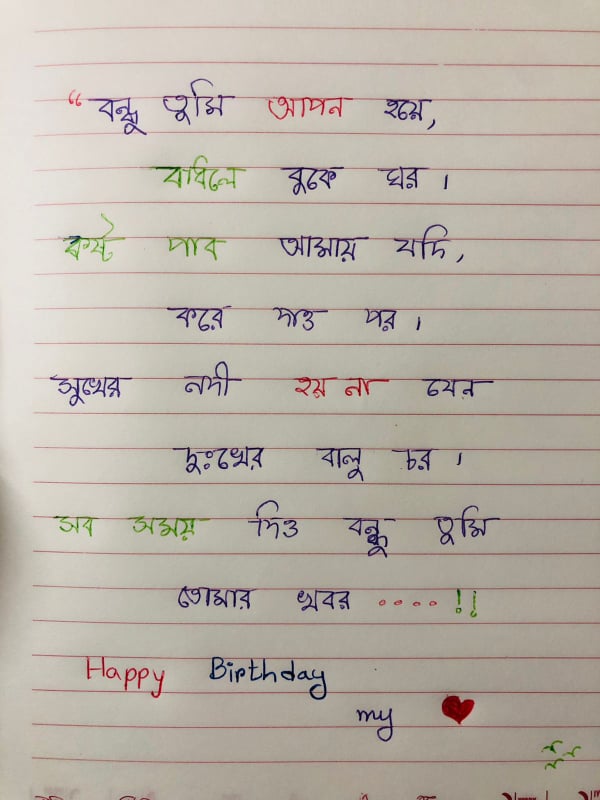 “বন্ধু তুমি আপন হয়ে,
বাধিলে বুকে ঘর ।
কষ্ট পাব আমায় যদি,
করে দাও পর ।
সুখের নদী হয় না যেন
দুঃখের বালু চর ।
সব সময় দিও বন্ধু তুমি
তোমার খবর ....!!
Happy Birthday
my